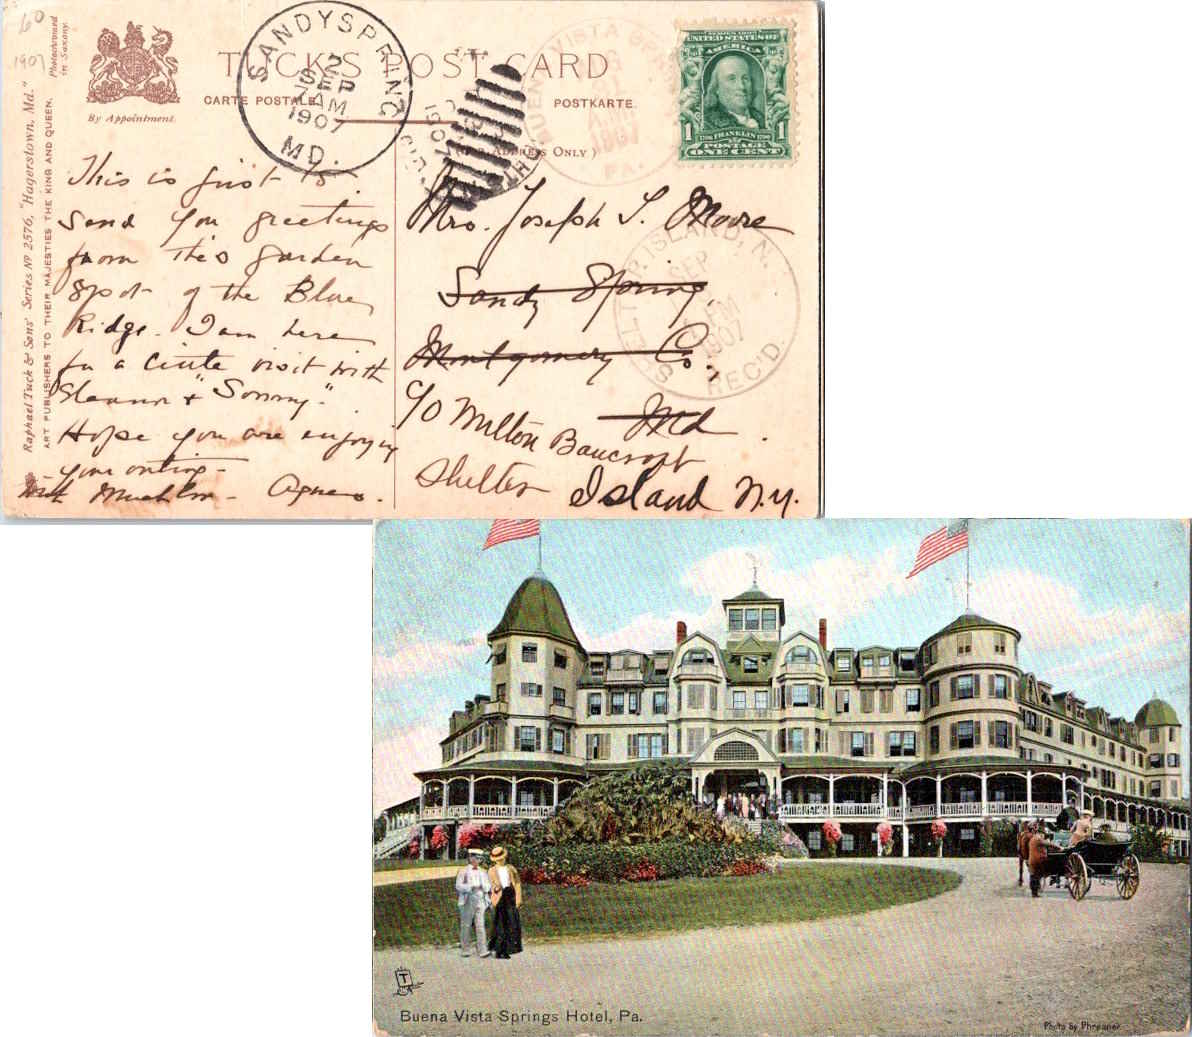 60
1907
Photochromed
in Saxony.
Raphael Tuck & Sons' Series No 2576, "Hagerstown, Md."
ART PUBLISHERS TO THEIR MAJESTIES THE KING AND QUEEN.
By Appointment.
TUCK'S POST CARD
CARTE POSTALE.
POSTKARTE.
(FOR ADDRESS ONLY)
SANDY SPRING
2
SEP
AM
1907
MD.
1907
BUENA VISTA SPRING
1907
PA.
SERIES 1902
UNITED STATES OF
AMERICA
1 1
1706 FRANKLIN 1790
POSTAGE
ONE CENT
This is just to
send you greetings
from this garden
spot of the Blue
Ridge. I am here
for a little visit with
Eleanor & "Sonny".
Hope you are enjoying
your outing -
With much love - Agnes.
Mrs. Joseph T. Moore
Sandy Spring,
Montgomery Co.,
Md.
c/o Milton Bancroft
Shelter Island N.Y.
SHELTER ISLAND, N.
SEP
PM
1907
REC'D.
T
Buena Vista Springs Hotel, Pa.
Photo by Phreaner